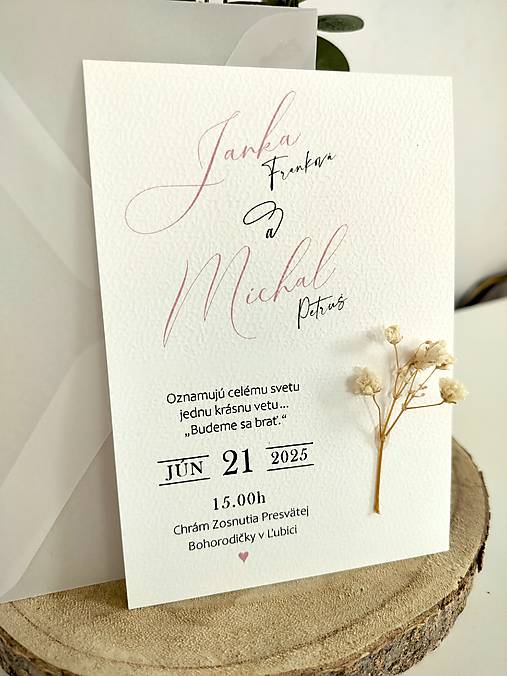 Janka
Franková
a
Michal
Petruš
Oznamujú celému svetu
jednu krásnu vetu...
„Budeme sa brať.“
JÚN 21 2025
15.00h
Chrám Zosnutia Presvätej
Bohorodičky v Ľubici